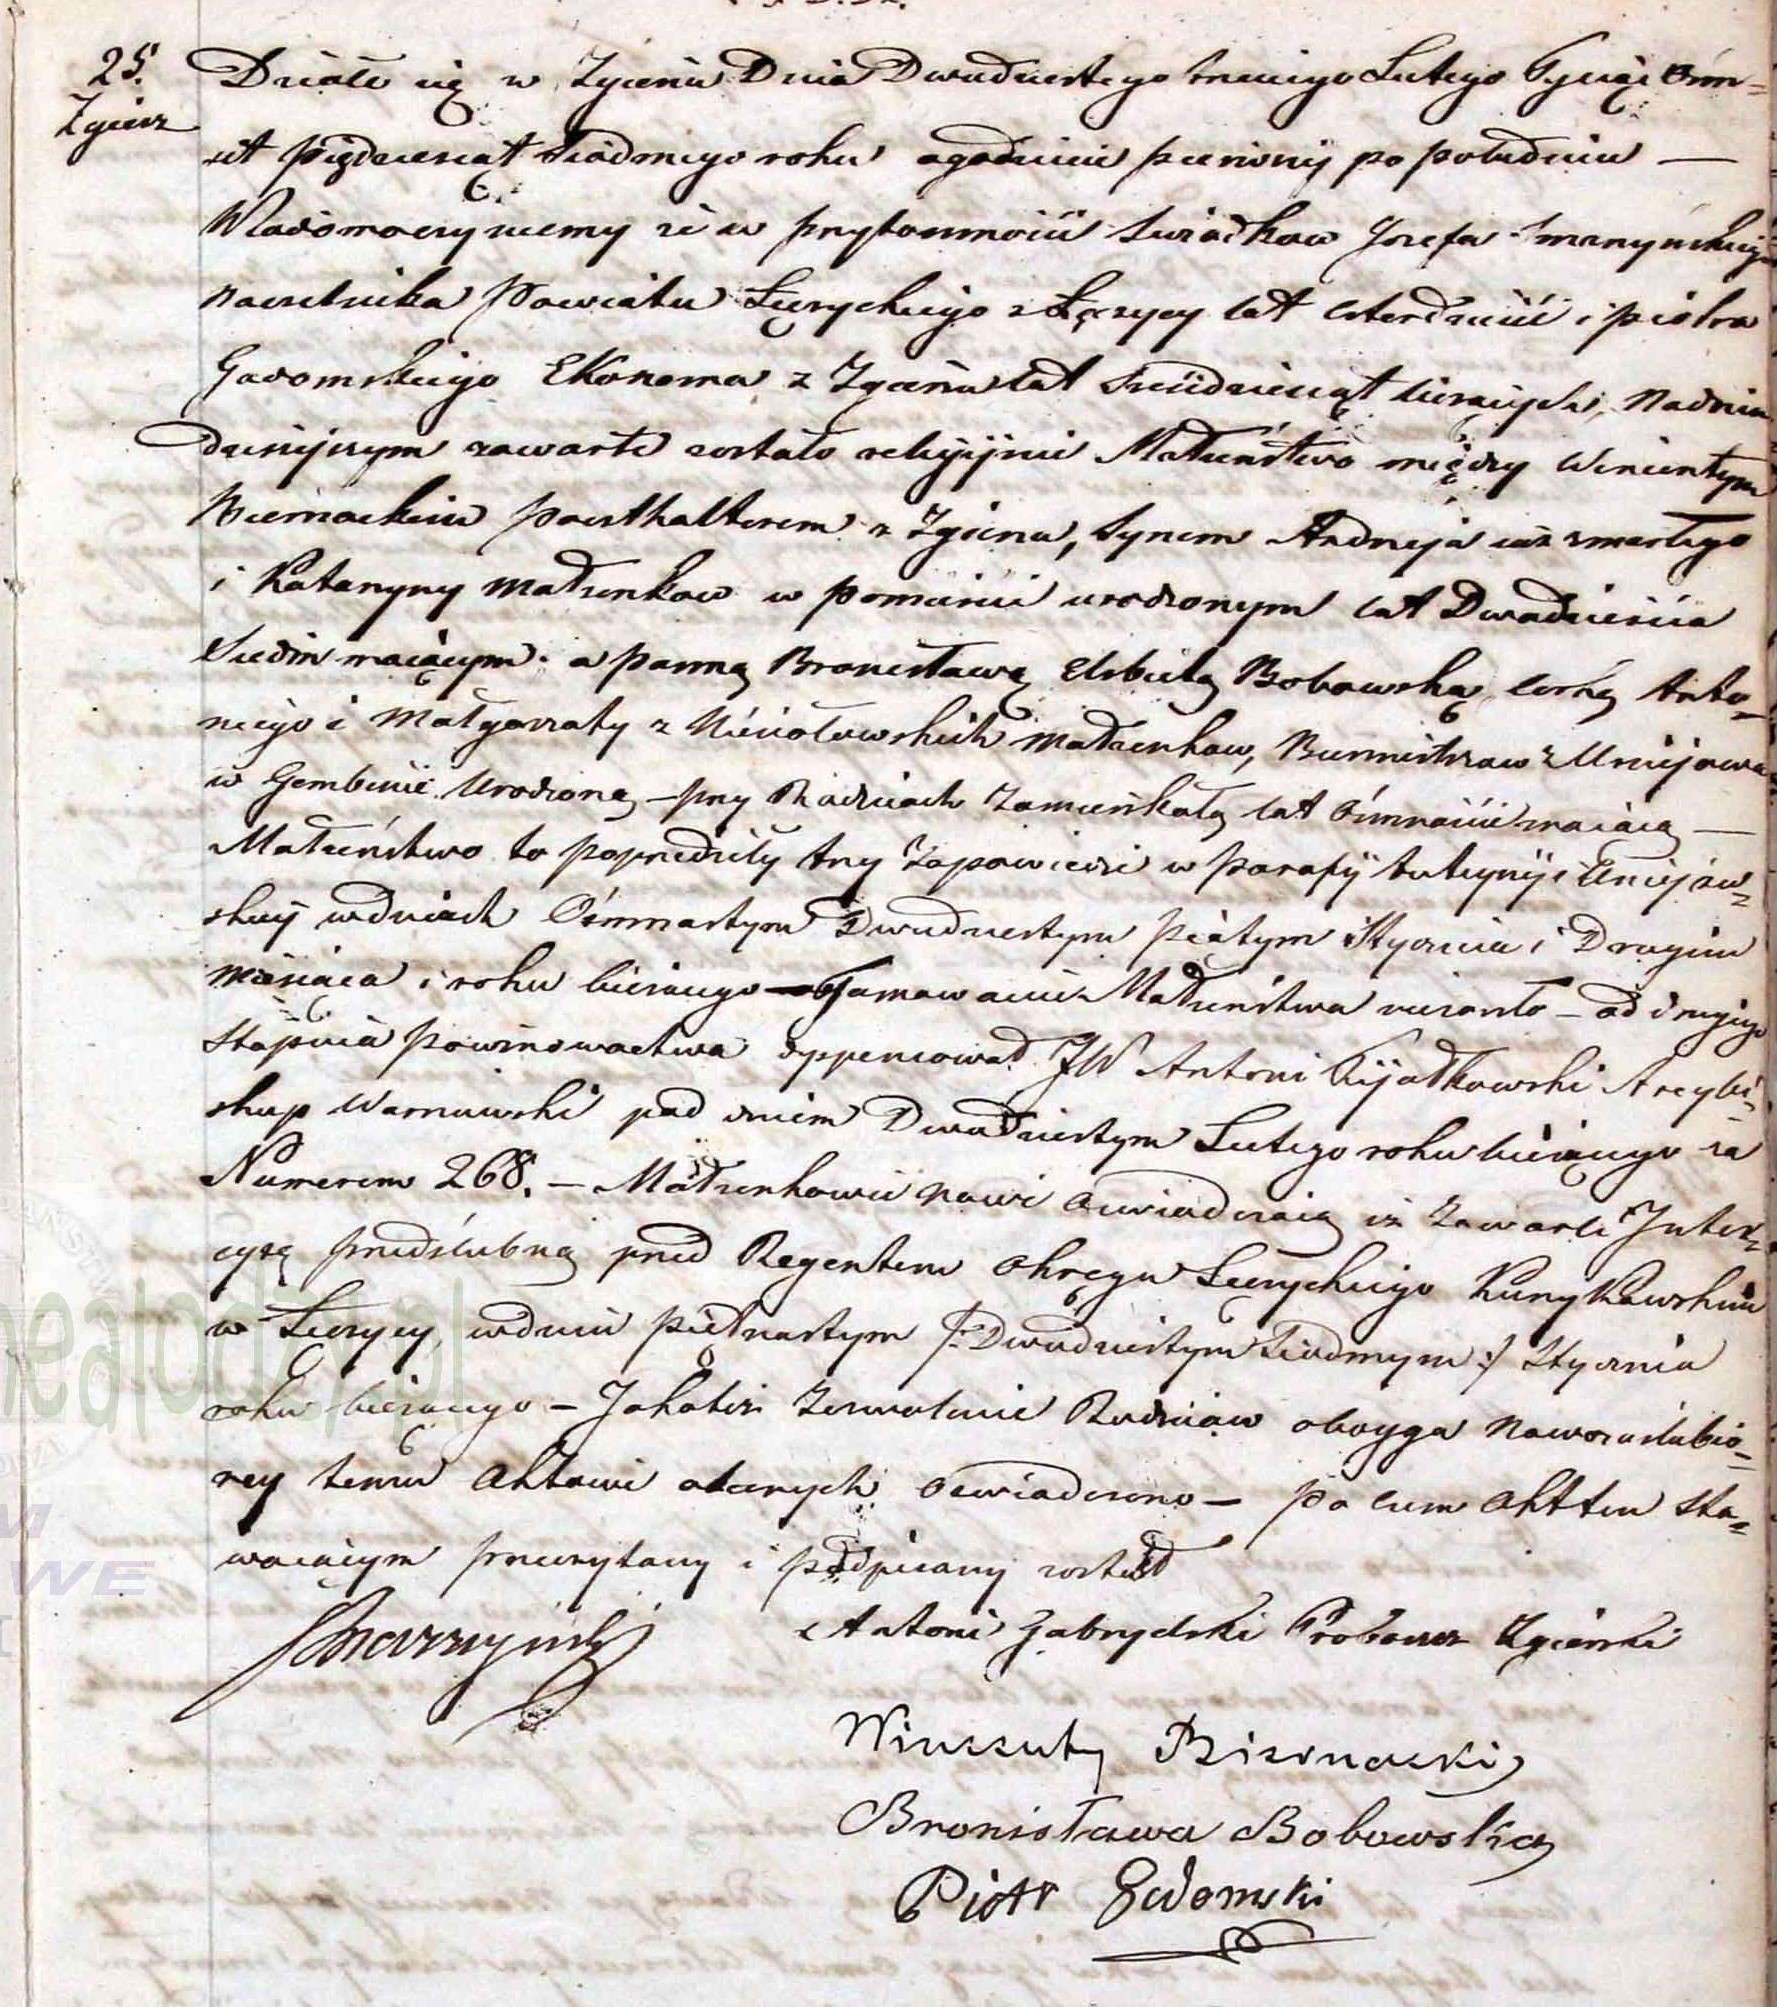 25.
Zgierz
Działo się w Zgierzu Dnia Dwudziestego trzeciego Lutego Tysiąc Ośm=
set pięćdziesiąt siódmego roku o godzinie pierwszej po południu —
Wiadomo czyniemy że w przytomności Świadków Józefa Smarzyńskiego
Naczelnika Powiatu Łęczyckiego z Łęczycy lat czterdzieści i Piotra
Gadomskiego Ekonoma z Zgierza lat sześćdziesiąt liczących, na dniu
dzisiejszym zawarte zostało religijnie Małżeństwo między Wincentym
Biernackim Poczthalterem z Zgierza, Synem Andrzeja już zmarłego
i Katarzyny Małżonków w urodzonym lat Dwadzieścia
Siedm mającym, a Panną Bronisławą Elżbietą Bobowską, córką Anto=
niego i Małgorzaty z Małżonków, Burmistrzów z Uniejowa
w Gembinie Urodzoną – przy Rodzicach zamieszkałą lat Ośmnaście mającą —
Małżeństwo to poprzedziły trzy Zapowiedzi w parafij tutejszej i Uniejow=
skiej w dniach Ośmnastym Dwudziestym piątym Stycznia i Drugim
miesiąca i roku bieżącego – Tamowanie Małżeństwa nie zaszło – od drugiego
stopnia powinowactwa dyspensował JW Antoni Fijałkowski Arcybi=
skup Warszawski pod dniem Dwudziestym Lutego roku bieżącego za
Numerem 268. – Małżonkowie nowi oświadczają iż zawarli Inter=
cyzę przedślubną przed Regentem Okręgu Łęczyckiego
w Łęczycy, w dniu piętnastym /: Dwudziestym siódmym :/ Stycznia
roku bieżącego – Jakoteż zezwolenie Rodziców obojga Nowozaślubio=
nych temu Aktowi obecnych oświadczono – po czem Akt ten sta=
wającym przeczytany i podpisany został
Smarzyński
X Antoni Gabryelski Proboszcz Zgierski
Wincenty Biernacki
Bronisława Bobowska
Piotr Gadomski
nealodzy.pl